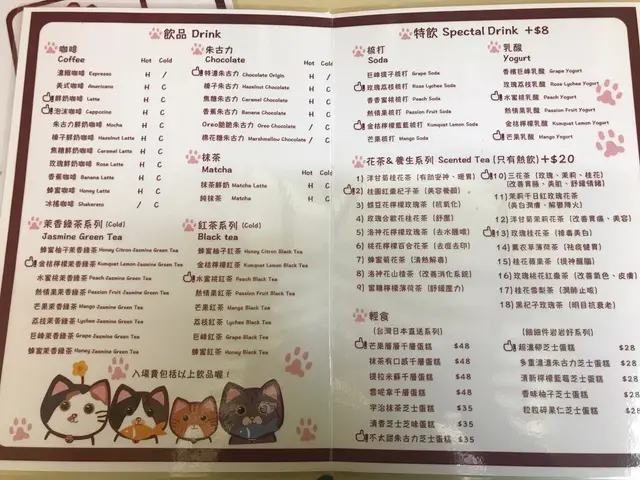 飲品 Drink
咖啡
Coffee Hot Cold
濃縮咖啡 Espresso H /
美式咖啡 Americano H C
鮮奶咖啡 Latte H C
泡沫咖啡 Cappocino H C
朱古力鮮奶咖啡 Mocha H C
榛子鮮奶咖啡 Hazelnut Latte H C
焦糖鮮奶咖啡 Caramel Latte H C
玫瑰鮮奶咖啡 Rose Latte H C
香蕉咖啡 Banana Latte H C
蜂蜜咖啡 Honey Latte H C
冰搖咖啡 Shakerato / C
朱古力
Chocolate Hot Cold
特濃朱古力 Chocolate Origin H /
榛子朱古力 Hazelnut Chocolate H C
焦糖朱古力 Caramel Chocolate H C
香蕉朱古力 Banana Chocolate H C
Oreo脆脆朱古力 Oreo Chocolate / C
棉花糖朱古力 Marshmallow Chocolate H /
抹茶
Matcha
抹茶鮮奶 Matcha Latte H C
純抹茶 Matcha H C
茉香綠茶系列 (Cold)
Jasmine Green Tea
蜂蜜柚子茉香綠茶 Honey Citron Jasmine Green Tea
金桔檸檬茉香綠茶 Kumquat Lemon Jasmine Green Tea
水蜜桃茉香綠茶 Peach Jasmine Green Tea
熱情果茉香綠茶 Passion Fruit Jasmine Green Tea
芒果茉香綠茶 Mango Jasmine Green Tea
荔枝茉香綠茶 Lychee Jasmine Green Tea
巨峰茉香綠茶 Grape Jasmine Green Tea
蜂蜜茉香綠茶 Honey Jasmine Green Tea
紅茶系列 (Cold)
Black tea
蜂蜜柚子紅茶 Honey Citron Black Tea
金桔檸檬紅茶 Kumquat Lemon Black Tea
水蜜桃紅茶 Peach Black Tea
熱情果紅茶 Passion Fruit Black Tea
芒果紅茶 Mango Black Tea
荔枝紅茶 Lychee Black Tea
巨峰紅茶 Grape Black Tea
蜂蜜紅茶 Honey Black Tea
入場費包括以上飲品喔！
特飲 Spectal Drink +$8
梳打
Soda
巨峰提子梳打 Grape Soda
玫瑰荔枝梳打 Rose Lychee Soda
香香蜜桃梳打 Peach Soda
熱情果梳打 Passion Fruit Soda
金桔檸檬藍藍梳打 Kumquat Lemon Soda
芒果梳打 Mango Soda
乳酸
Yogurt
香檳巨峰乳酸 Grape Yogurt
玫瑰荔枝乳酸 Rose Lychee Yogurt
水蜜桃乳酸 Peach Yogurt
熱情果乳酸 Passion Fruit Yogurt
金桔檸檬乳酸 Kumquat Lemon Yogurt
芒果乳酸 Mango Yogurt
花茶&養生系列 Scented Tea (只有熱飲) +$20
1) 洋甘菊桂花茶 (有助安神、暖胃)
2) 桂圓紅棗杞子茶 (美容養顏)
3) 蝶豆花檸檬玫瑰茶 (抗氧化)
4) 玫瑰合歡花桂花茶 (舒團)
5) 洛神花檸檬玫瑰茶 (去水腫唷)
6) 桃花檸檬百合花茶 (去痘去印)
7) 蜂蜜菊花茶 (清熱解毒)
8) 洛神花山楂茶 (改善消化系統)
9) 蜜糖檸檬薄荷茶 (舒緩壓力)
10) 三花茶 (玫瑰、茉莉、桂花)
(改善胃痛、美肌、舒緩情緒)
11) 茉莉千日紅玫瑰花茶
(美白潤膚、解鬱降火)
12) 洋甘菊茉莉花茶 (改善胃痛、美容)
13) 玫瑰桂花茶 (排毒美白)
14) 薰衣草薄荷茶 (祛痰健胃)
15) 桂花蘋果茶 (提神醒腦)
16) 玫瑰桂花紅棗茶 (改善氣色、皮膚)
17) 桂花雪梨茶 (潤肺止咳)
18) 黑杞子玫瑰茶 (明目抗衰老)
輕食
(台灣日本直送系列)
芒果層層千層蛋糕 $48
抹茶有口感千層蛋糕 $48
提拉米蘇千層蛋糕 $48
雲呢拿千層蛋糕 $48
宇治抹茶芝士蛋糕 $35
清香芝士芝味蛋糕 $35
不太甜朱古力芝士蛋糕 $35
(細細件岩岩好系列)
超濃郁芝士蛋糕 $28
多重濃濃朱古力芝士蛋糕 $28
清新檸檬藍莓芝士蛋糕 $28
香味柚子芝士蛋糕 $28
粒粒碎果仁芝士蛋糕 $28